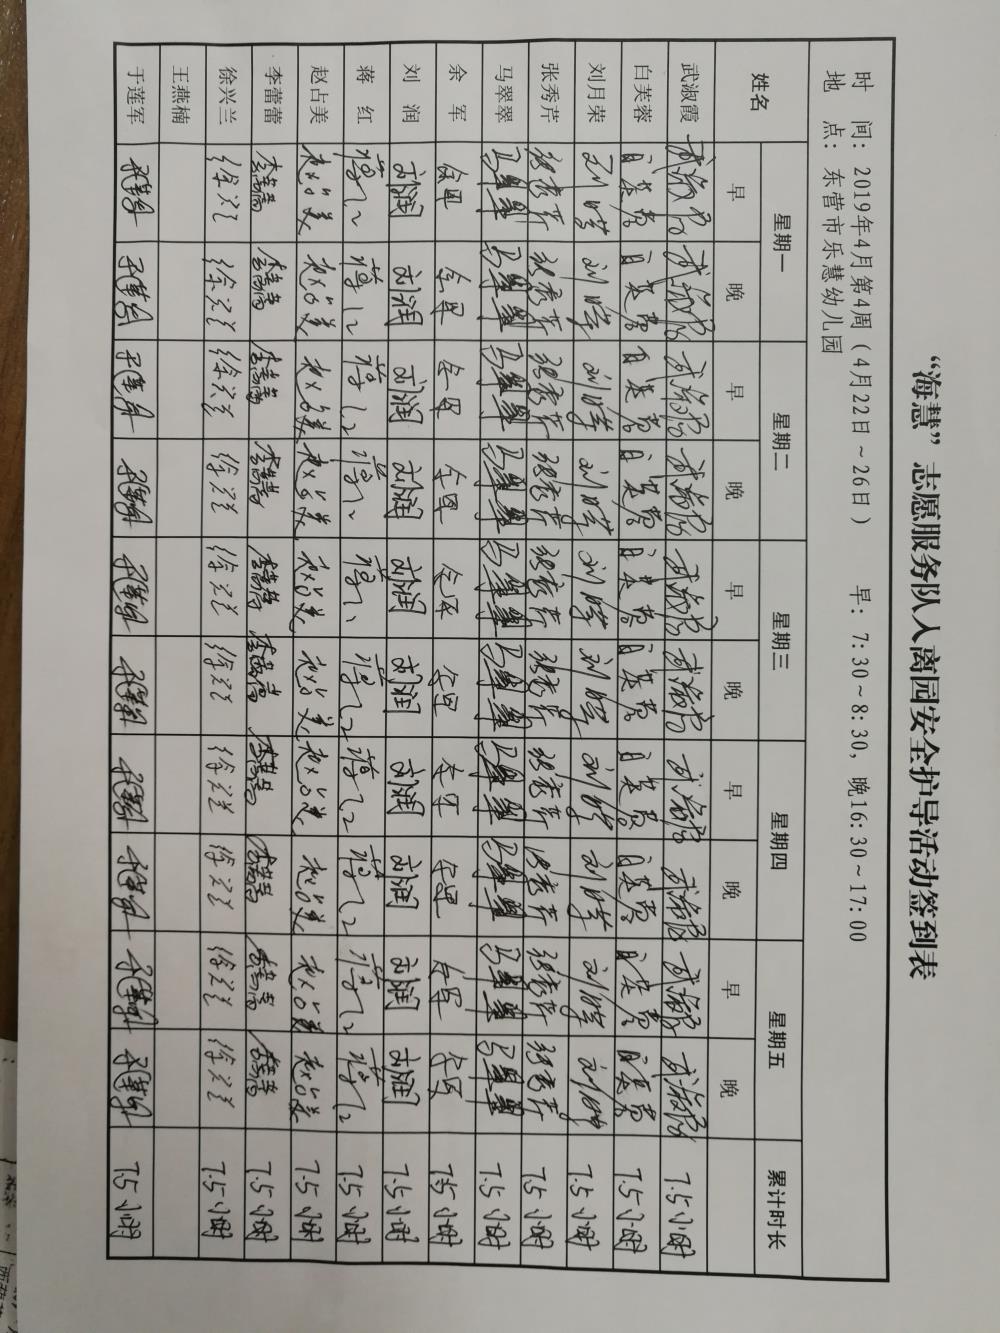 “海慧”志愿服务队人离园安全护导活动签到表
时 间：2019年4月第4周（4月22日～26日） 早：7:30～8:30，晚16:30～17:00
地 点：东营市乐慧幼儿园
姓名 星期一 星期二 星期三 星期四 星期五 累计时长
早 晚 早 晚 早 晚 早 晚 早 晚
武淑霞 武淑霞 武淑霞 武淑霞 武淑霞 武淑霞 武淑霞 武淑霞 武淑霞 武淑霞 武淑霞 7.5小时
白芙蓉 白芙蓉 白芙蓉 白芙蓉 白芙蓉 白芙蓉 白芙蓉 白芙蓉 白芙蓉 白芙蓉 白芙蓉 7.5小时
刘月荣 7.5小时
张秀芹 张秀芹 张秀芹 张秀芹 张秀芹 张秀芹 张秀芹 张秀芹 张秀芹 张秀芹 张秀芹 7.5小时
马翠翠 马翠翠 马翠翠 马翠翠 马翠翠 马翠翠 马翠翠 马翠翠 马翠翠 马翠翠 马翠翠 7.5小时
余军 7.5小时
刘润 刘润 刘润 刘润 刘润 刘润 刘润 刘润 刘润 刘润 刘润 7.5小时
蒋红 蒋红 蒋红 蒋红 蒋红 蒋红 蒋红 蒋红 蒋红 蒋红 蒋红 7.5小时
赵占美 赵占美 赵占美 赵占美 赵占美 赵占美 赵占美 赵占美 赵占美 赵占美 赵占美 7.5小时
李蕾蕾 李蕾蕾 李蕾蕾 李蕾蕾 李蕾蕾 李蕾蕾 李蕾蕾 李蕾蕾 李蕾蕾 李蕾蕾 李蕾蕾 7.5小时
徐兴兰 徐兴兰 徐兴兰 徐兴兰 徐兴兰 徐兴兰 徐兴兰 徐兴兰 徐兴兰 徐兴兰 徐兴兰 7.5小时
王燕楠
于莲军 于莲军 于莲军 于莲军 于莲军 于莲军 于莲军 于莲军 于莲军 于莲军 于莲军 7.5小时